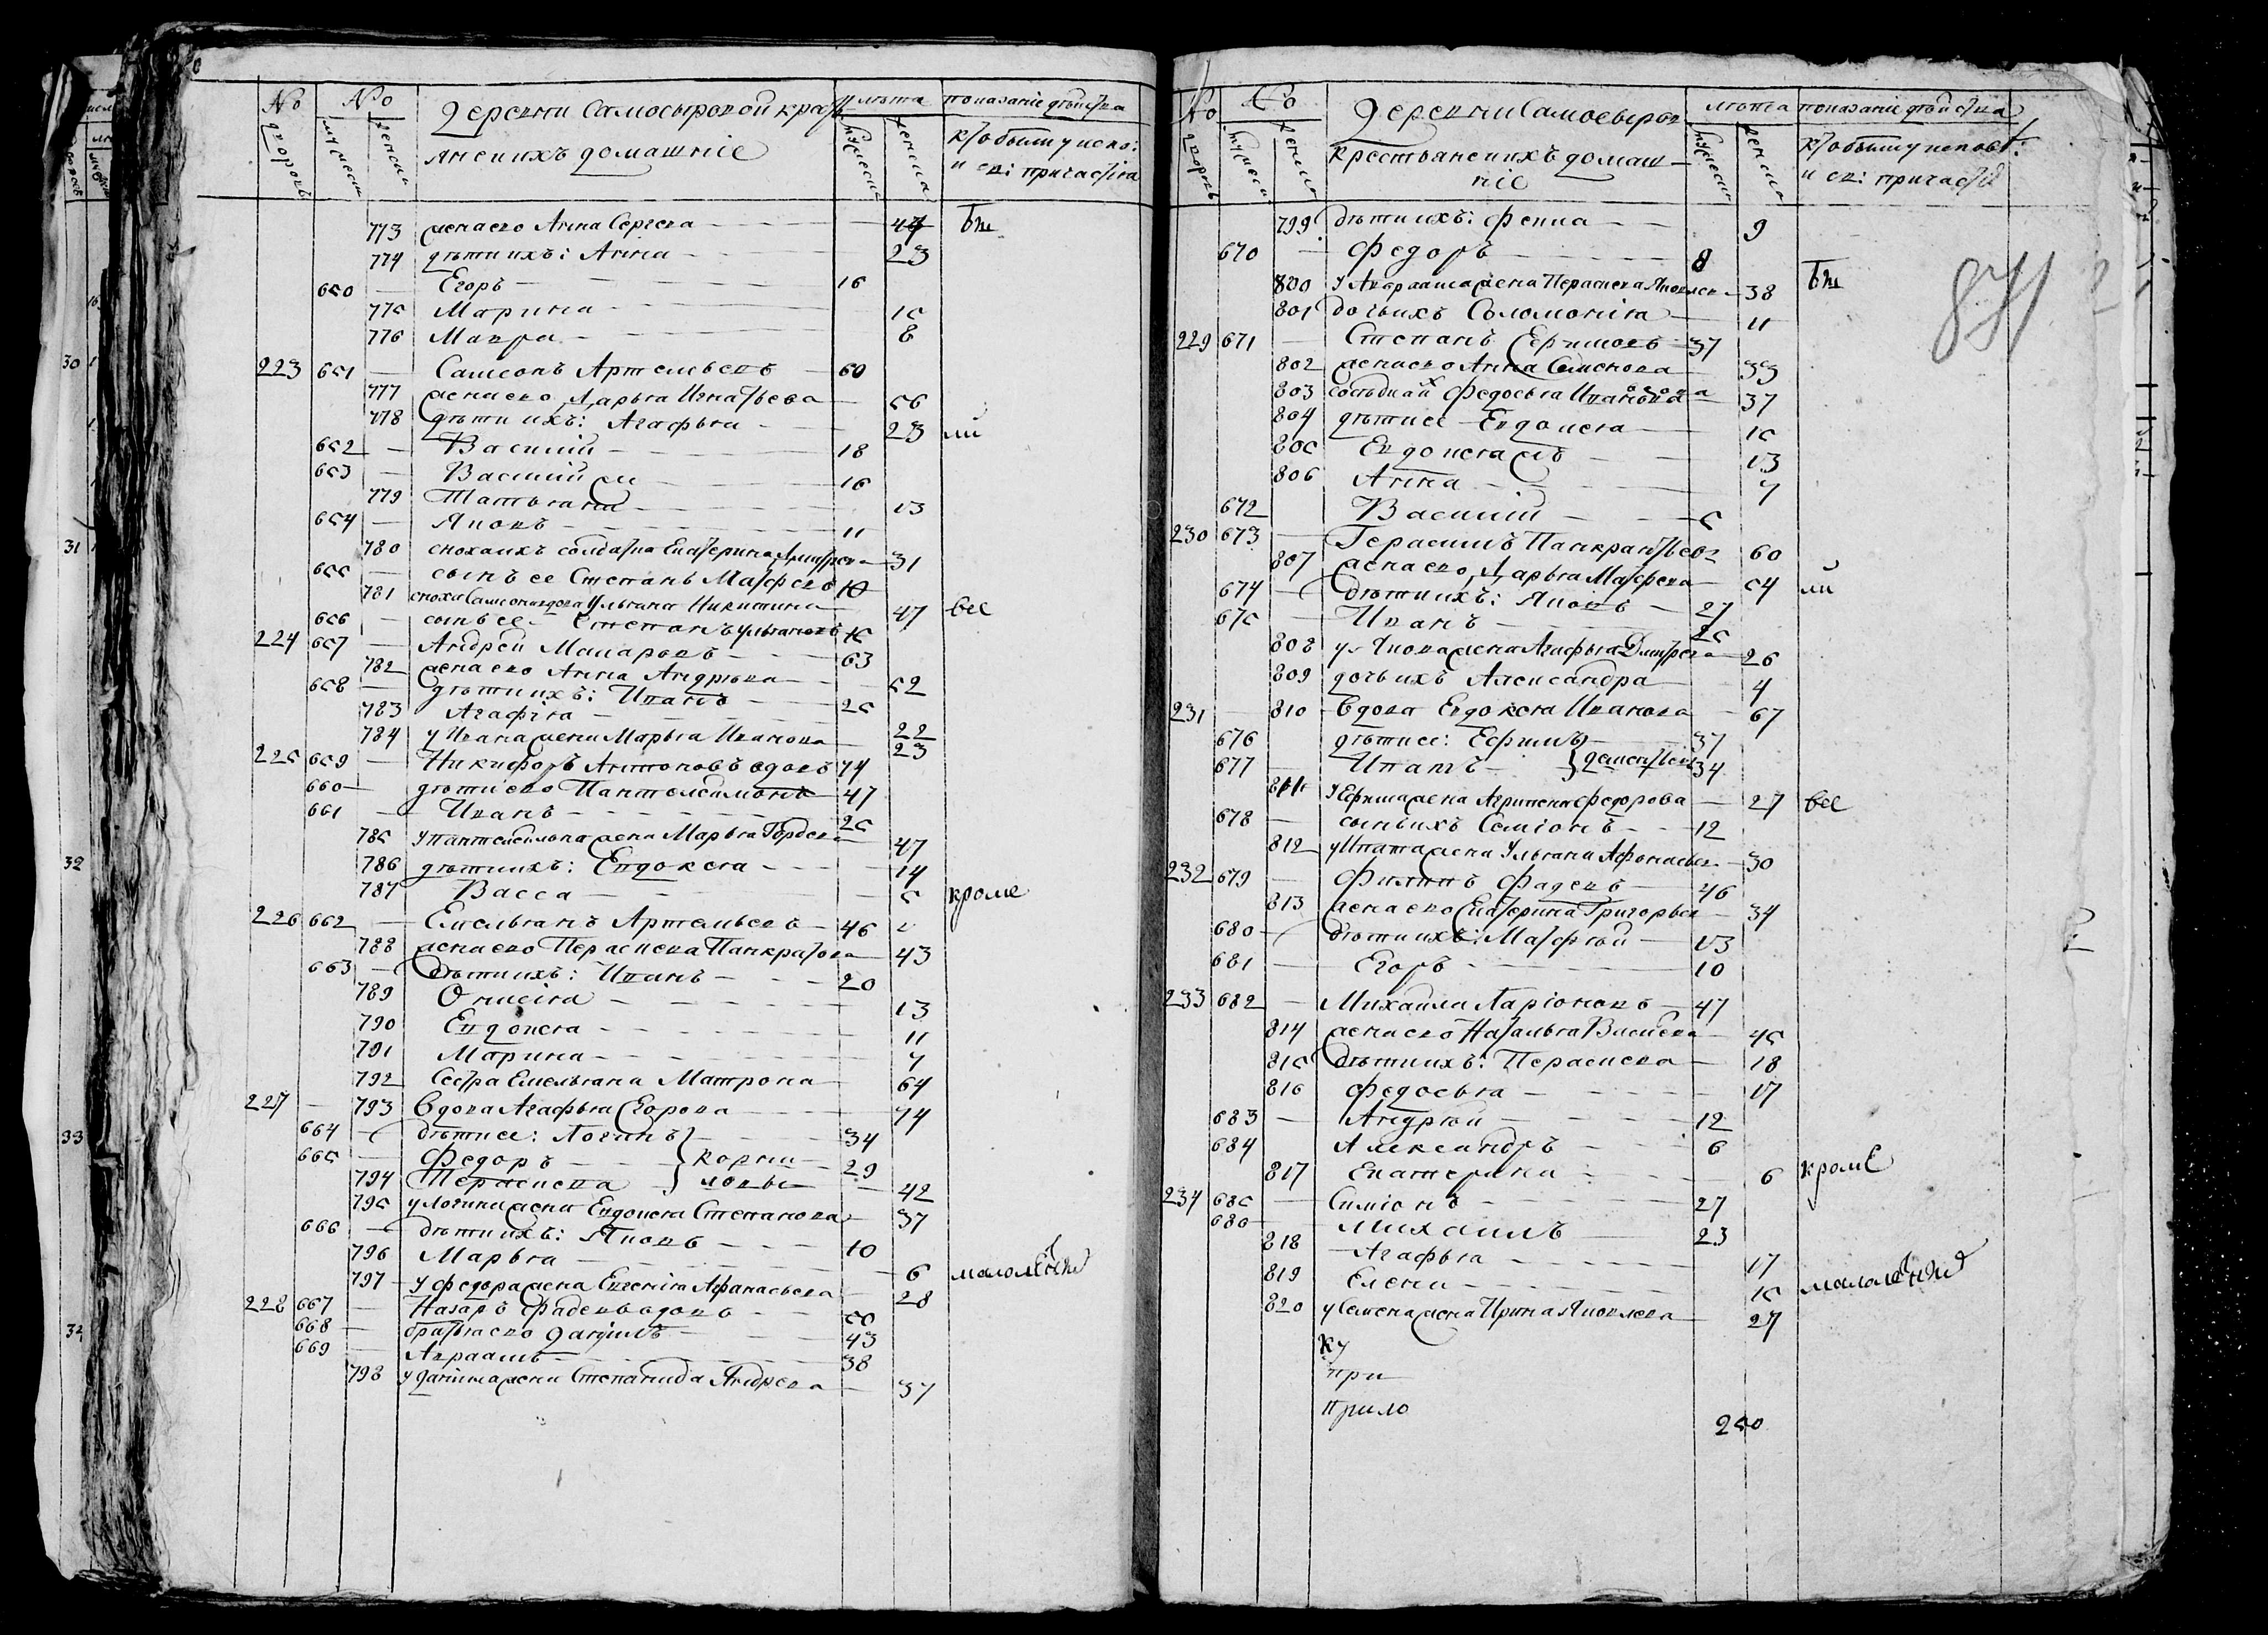 № № Деревни Самосыровой крестьянскихъ домашніе лѣта показаніе дѣйства
дворовъ мужеск женск мужеска женска кто былъ у испо: и св: причастія
773 жена ево Анна Сергеева 44 бы
774 дѣти ихъ: Анна 23
650 Егоръ 16
775 Марина 15
776 Мавра 8
223 651 Самсонъ Артемьевъ 60
777 жена ево Дарья Игнатьева 56
778 дѣти ихъ: Агафья 23 ли
652 Василий 18
653 Василий 16
779 Татьяна 13
654 Яковъ 11
780 сноха ихъ солдатка Екатерина Дмитрева 31
655 сынъ ее Степанъ Матфеевъ 10
781 сноха Самсона вдова Ульяна Никитина 47 все
656 сынъ ее Степанъ Ульяновъ 15
224 657 Андрей Макаровъ 63
782 жена ево Анна Андреева 52
658 дѣти ихъ: Иванъ 25
783 Агафія 22
784 у Ивана жена Марья Иванова 23
225 659 Никифоръ Антоновъ вдовъ 74
660 дѣти ево Пантелеимонъ 47
661 Иванъ 25
785 у Пантелеимона жена Марья Гордеева 47
786 дѣти ихъ: Евдокея 14
787 Васса 5 кроме
226 662 Емельянъ Артемьевъ 46
788 жена ево Пераскева Панкратова 43
663 дѣти ихъ: Иванъ 20
789 Онисія 13
790 Евдокея 11
791 Марина 7
792 Сестра Емельяна Матрона 64
227 793 Вдова Агафья Егорова 74
664 дѣти ее: Логинъ 34
665 Федоръ } Корни 29
794 Пераскева } ловы 42
795 у Логина жена Евдокея Степанова 37
666 дѣти ихъ: Яковъ 10
796 Марья 6 малолѣтны
797 у Федора жена Евгенія Афанасьева 28
228 667 Назаръ Фадеевъ вдовъ 50
668 братья ево Данiилъ 43
669 Авраамъ 38
798 у Данiила жена Степанида Андреева 37
№ № Деревни Самосыров крестьянскихъ домашніе лѣта показаніе дѣйства
дворовъ мужеск женск мужеска женска кто былъ у исповѣ: и св: причастія
871
799 дѣти ихъ: Фекла 9
670 Федоръ 8
800 у Авраама жена Пераскева Яковлева 38 бы
801 дочь ихъ Соломонія 11
229 671 Степанъ Ефимовъ 37
802 жена ево Анна Семенова 33
803 солдатка Федосья Иванова 37
804 дѣти ее Евдокея 15
805 Евдокея 13
806 Анна 7
672 Василий 5
230 673 Герасимъ Панкратьевъ 60
807 жена ево Дарья Матфеева 54 ли
674 дѣти ихъ: Яковъ 27
675 Иванъ 25
808 у Якова жена Агафья Дмитрева 26
809 дочь ихъ Александра 4
231 810 Вдова Евдокея Иванова 67
676 дѣти ее: Ефимъ 37
677 Ипатъ } Дементьевы 34
811 у Ефима жена Агрипена Федорова 27 все
678 сынъ ихъ Семіонъ 12
812 у Ипата жена Ульяна Афонасьева 30
232 679 Филипъ Фадеевъ 46
813 жена ево Екатерина Григорьева 34
680 дѣти ихъ: Матфей 13
681 Егоръ 10
233 682 Михаила Ларіоновъ 47
814 жена ево Наталья Васильева 45
815 дѣти ихъ: Пераскева 18
816 Федосья 17
683 Андрей 12
684 Александръ 6
817 Екатерина 6 кроме
234 685 Симіонъ 27
686 Михаилъ 23
818 Агафья 17
819 Елена 15 малолѣтны
820 у Семена жена Ирина Яковлева 27
ку
при
прило
250